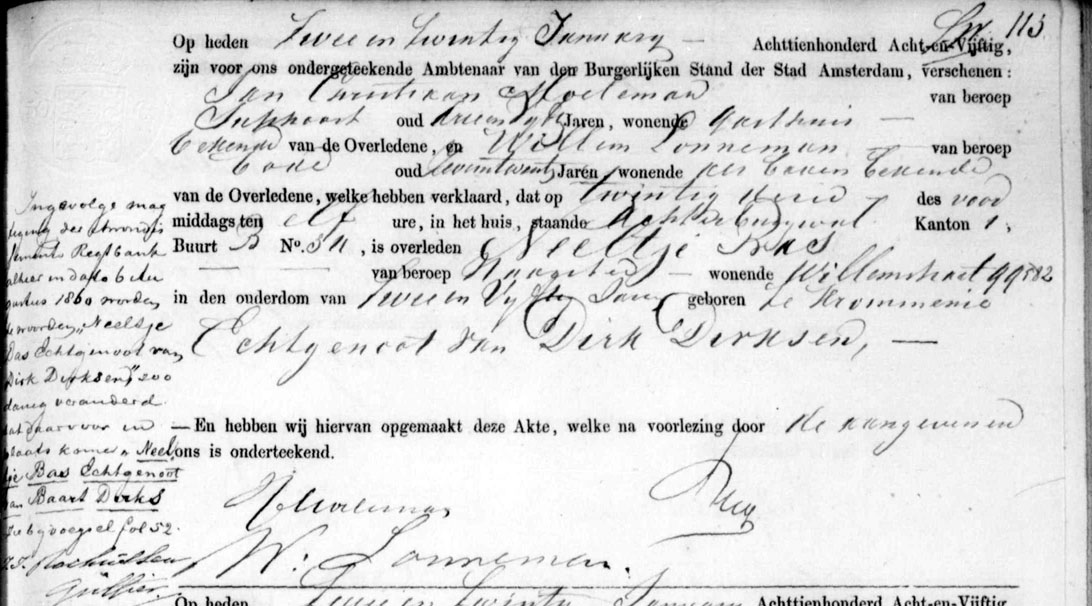 113
Op heden Twee en twintig January — Achttienhonderd Acht-en-Vijftig,
zijn voor ons ondergeteekende Ambtenaar van den Burgerlijken Stand der Stad Amsterdam, verschenen:
Jan Christiaan van beroep
Suppoost oud Jaren, wonende Gasthuis —
Bekende van de Overledene, en Willem Lonneman — van beroep
Bode oud Jaren wonende als boven Bekende
van de Overledene, welke hebben verklaard, dat op twintig dezer des voor
middags ten elf ure, in het huis, staande Achterburgwal Kanton 1,
Buurt No. 34, is overleden Neeltje Das
van beroep Naaister — wonende Willemstraat 99
in den ouderdom van Twee en Vyftig Jaren geboren te Krommenie
Echtgenoot van Dirk Dirksen, —
— En hebben wij hiervan opgemaakt deze Akte, welke na voorlezing door de aangevers en
ons is onderteekend.
W: Lonneman.
Ingevolge mag
tiging der Arrondis
sements Regtbank
alhier in dato 6
1860 worden
de woorden "Neeltje
Das Echtgenoot van
Dirk Dirksen" zoo
danig veranderd
dat daarvoor in
plaats kome "Neel
tje Bas Echtgenoot
van Baart Dirks
Zie bijvoegsel fol 52.
Op heden Twee en Twintig January Achttienhonderd Acht-en-Vijftig,